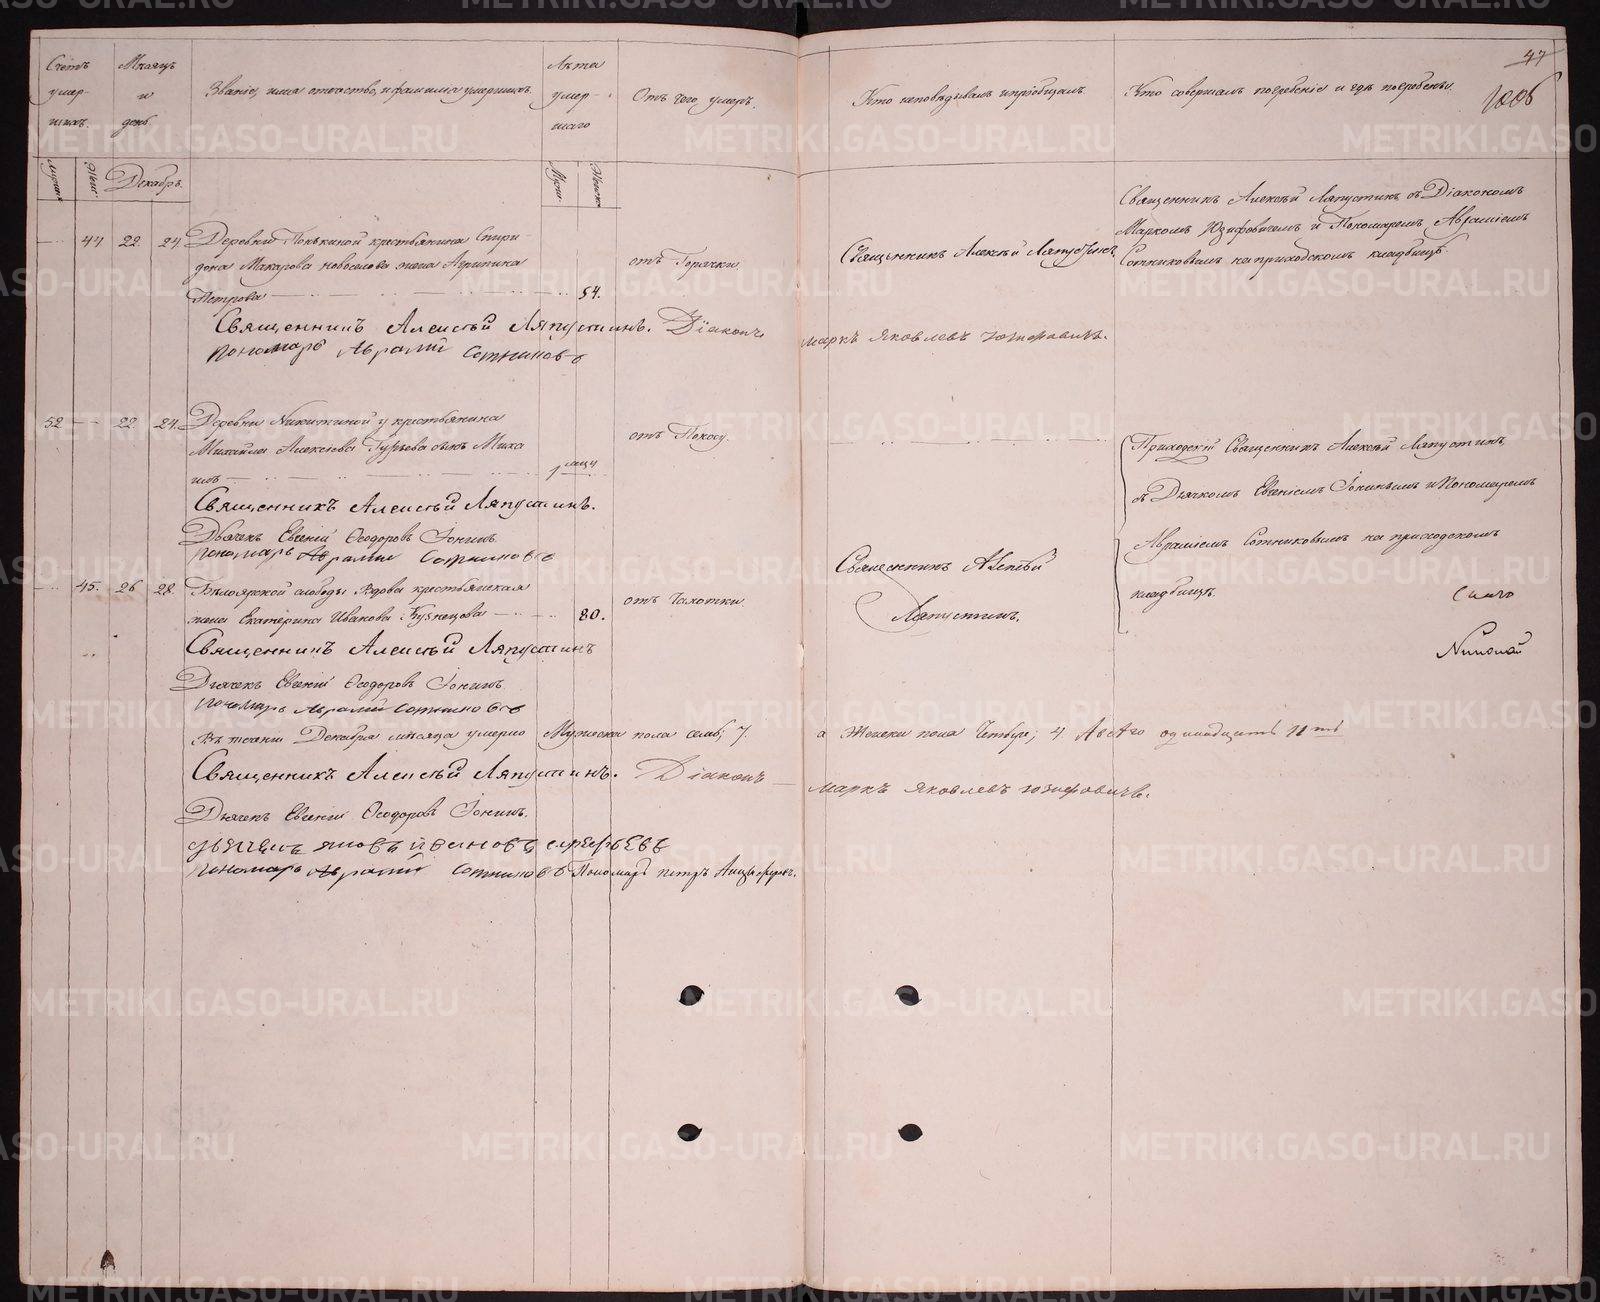 47
1006
Счетъ умер- шихъ.
Мѣсяцъ и день
Званіе, имя отечество, и фамилия умершихъ.
Лѣта умер- шаго
Отъ чего умеръ.
Кто исповѣдывалъ и пріобщалъ.
Кто совершалъ погребеніе и гдѣ погребены.
Женс.
Декабрь.
Муж.
Женск
44 22. 24. Деревни крестьянина Спири-
дона Макарова Новоселова жена Агрипина
Петрова 54.
отъ Горячки
Священникъ Алексѣй Ляпустинъ
Священникъ Алексѣй Ляпустинъ съ Діакономъ
Маркомъ Юзифовичемъ и Пономаремъ Авраміемъ
Сотниковымъ на приходскомъ кладбищѣ.
Священникъ Алексѣй Ляпустинъ. Діаконъ Маркъ Яковлевъ Юзифовичь.
Пономарь Аврамій Сотниковъ
52 22. 24. Деревни Никитиной у крестьянина
Михайла Алексѣева Гурьева сынъ Миха
илъ 1 мѣц
отъ Поносу.
Приходскій Священникъ Алексѣй Ляпустинъ
съ Дьячкомъ Евгеніемъ Іонинымъ и Пономаремъ
Авраміемъ Сотниковымъ на приходскомъ
кладбищѣ.
Священникъ Алексѣй Ляпустинъ.
Дьячекъ Евгеній Ѳеодоровъ Іонинъ
Пономарь Аврамій Сотниковъ
45. 26 28. Бѣлоярской слободы Вдова крестьянская
жена Екатерина Иванова Кузнецова 80.
отъ Чахотки
Священникъ Алексѣй
Ляпустинъ.
Николай
Священникъ Алексѣй Ляпустинъ
Дьячекъ Евгеній Ѳеодоровъ Іонинъ
Пономарь Аврамій Сотниковъ
Въ теченіи Декабря мѣсяца умерло Мужеска пола семь; 7. а Женска пола Четыре; 4 А всѣго одинадцать 11 ть
Священникъ Алексѣй Ляпустинъ. Діаконъ Маркъ Яковлевъ Юзифовичь.
Дьячекъ Евгеній Ѳеодоровъ Іонинъ.
Дьячекъ Яковъ Ивановъ
Пономарь Аврамій Сотниковъ Пономарь Петръ
METRIKI.GASO-URAL.RU